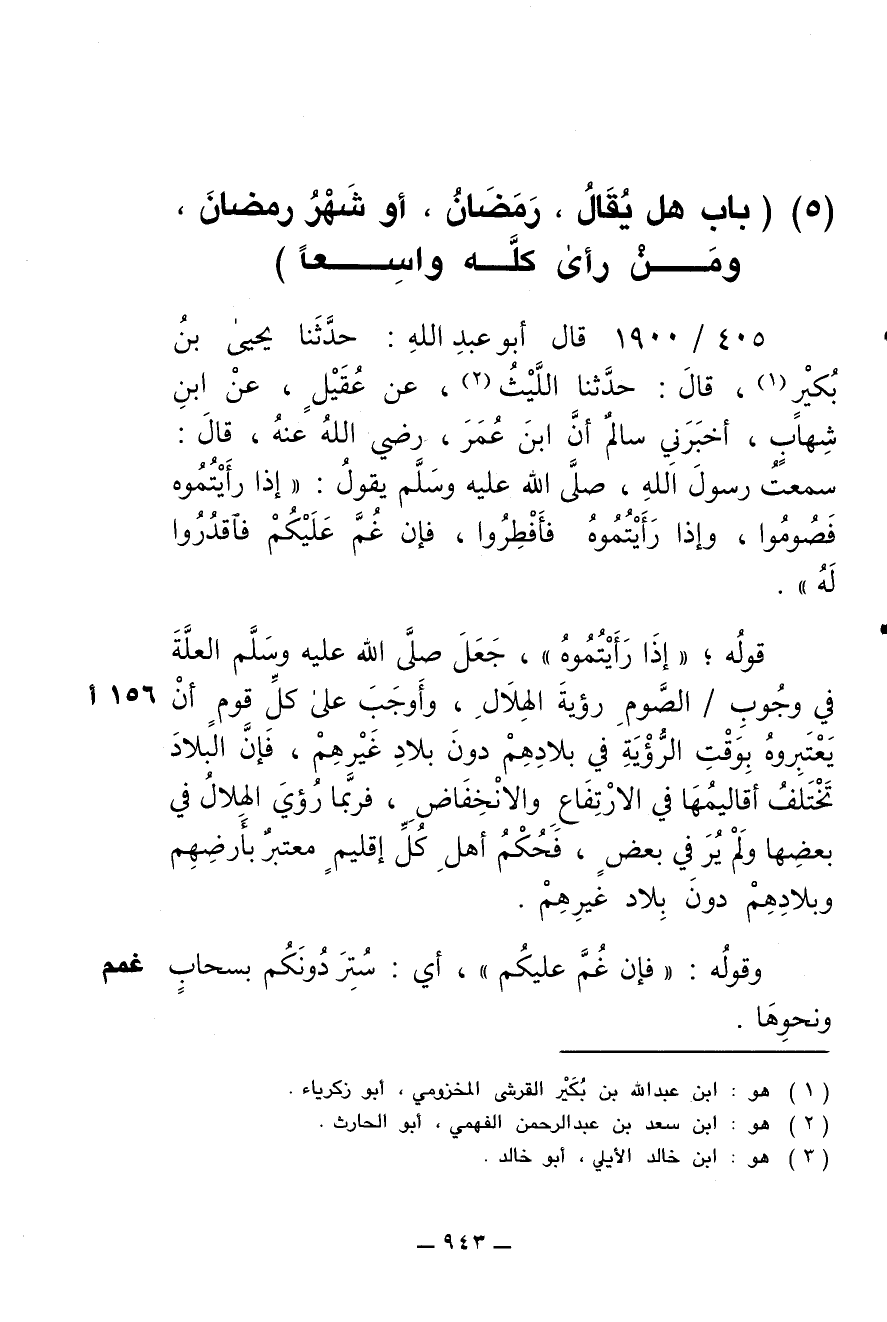 (٥) ( باب هل يُقَالُ ، رَمَضَانُ ، أو شَهْرُ رمضانَ ،
ومَنْ رأىٰ كلَّه واسِعاً )
٤٠٥ / ١٩٠٠ قال أبو عبدِ اللهِ : حدَّثَنا يحيىٰ بنُ
بُكَيْرٍ (١) ، قالَ : حدَّثنا اللَّيْثُ (٢) ، عن عُقَيْلٍ ، عنْ ابنِ
شِهابٍ ، أخبَرَني سالمٌ أنَّ ابنَ عُمَرَ ، رضي اللهُ عنهُ ، قالَ :
سمعتُ رسولَ اللهِ ، صلَّى الله عليه وسَلَّم يقولُ : « إذا رأَيْتُمُوه
فَصُومُوا ، وإذا رَأَيْتُمُوهُ فأَفْطِرُوا ، فإن غُمَّ عَلَيْكُمْ فٱقدُرُوا
لَهُ » .
قولُه ؛ « إذَا رَأَيْتُمُوهُ » ، جَعَلَ صلَّى الله عليه وسَلَّم العلَّةَ
في وجُوبِ / الصَّومِ رؤيةَ الهِلَالِ ، وأَوجَبَ علىٰ كلِّ قومٍ أنْ ١٥٦ أ
يَعْتَبِروهُ بِوَقْتِ الرُّؤْيَةِ في بلادِهِمْ دونَ بلادِ غَيْرِهِمْ ، فَإنَّ البلادَ
تَخْتَلفُ أقاليمُهَا في الارْتِفَاعِ والانْخِفَاضِ ، فربَّما رُؤيَ الهِلالُ في
بعضِها ولَمْ يُرَ في بعضٍ ، فَحُكْمُ أهلِ كُلِّ إقليمٍ معتبرٌ بأَرضِهِم
وبلادِهِمْ دونَ بِلاد غَيرِهِمْ .
وقولُه : « فإن غُمَّ عليكُم » ، أي : سُتِرَ دُونَكُم بسحابٍ غمم
ونحوِهَا .
( ١ ) هو : ابن عبدالله بن بُكَيْر القرشى المخزومي ، أبو زكرياء .
( ٢ ) هو : ابن سعد بن عبدالرحمن الفهمي ، أبو الحارث .
( ٣ ) هو : ابن خالد الأيلي ، أبو خالد .
– ٩٤٣ –